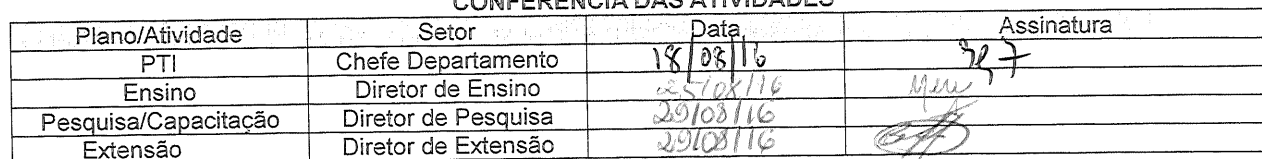 CONFERÊNCIA DAS ATIVIDADES
Plano/Atividade Setor Data Assinatura
PTI Chefe Departamento 18/08/16
Ensino Diretor de Ensino 25/08/16
Pesquisa/Capacitação Diretor de Pesquisa 29/08/16
Extensão Diretor de Extensão 29/08/16